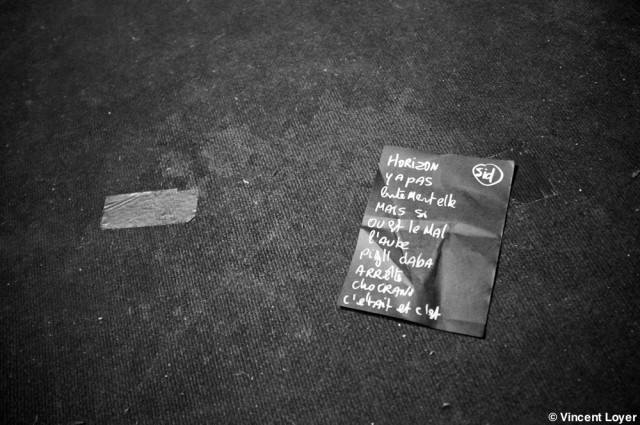 HORIZON
Sid
y a PAS
lentement elle
MAIS si
OU est le MAL
l'AUBE
Pigll DABA
ARRÊTE
c'etAit et c'est
© Vincent Loyer